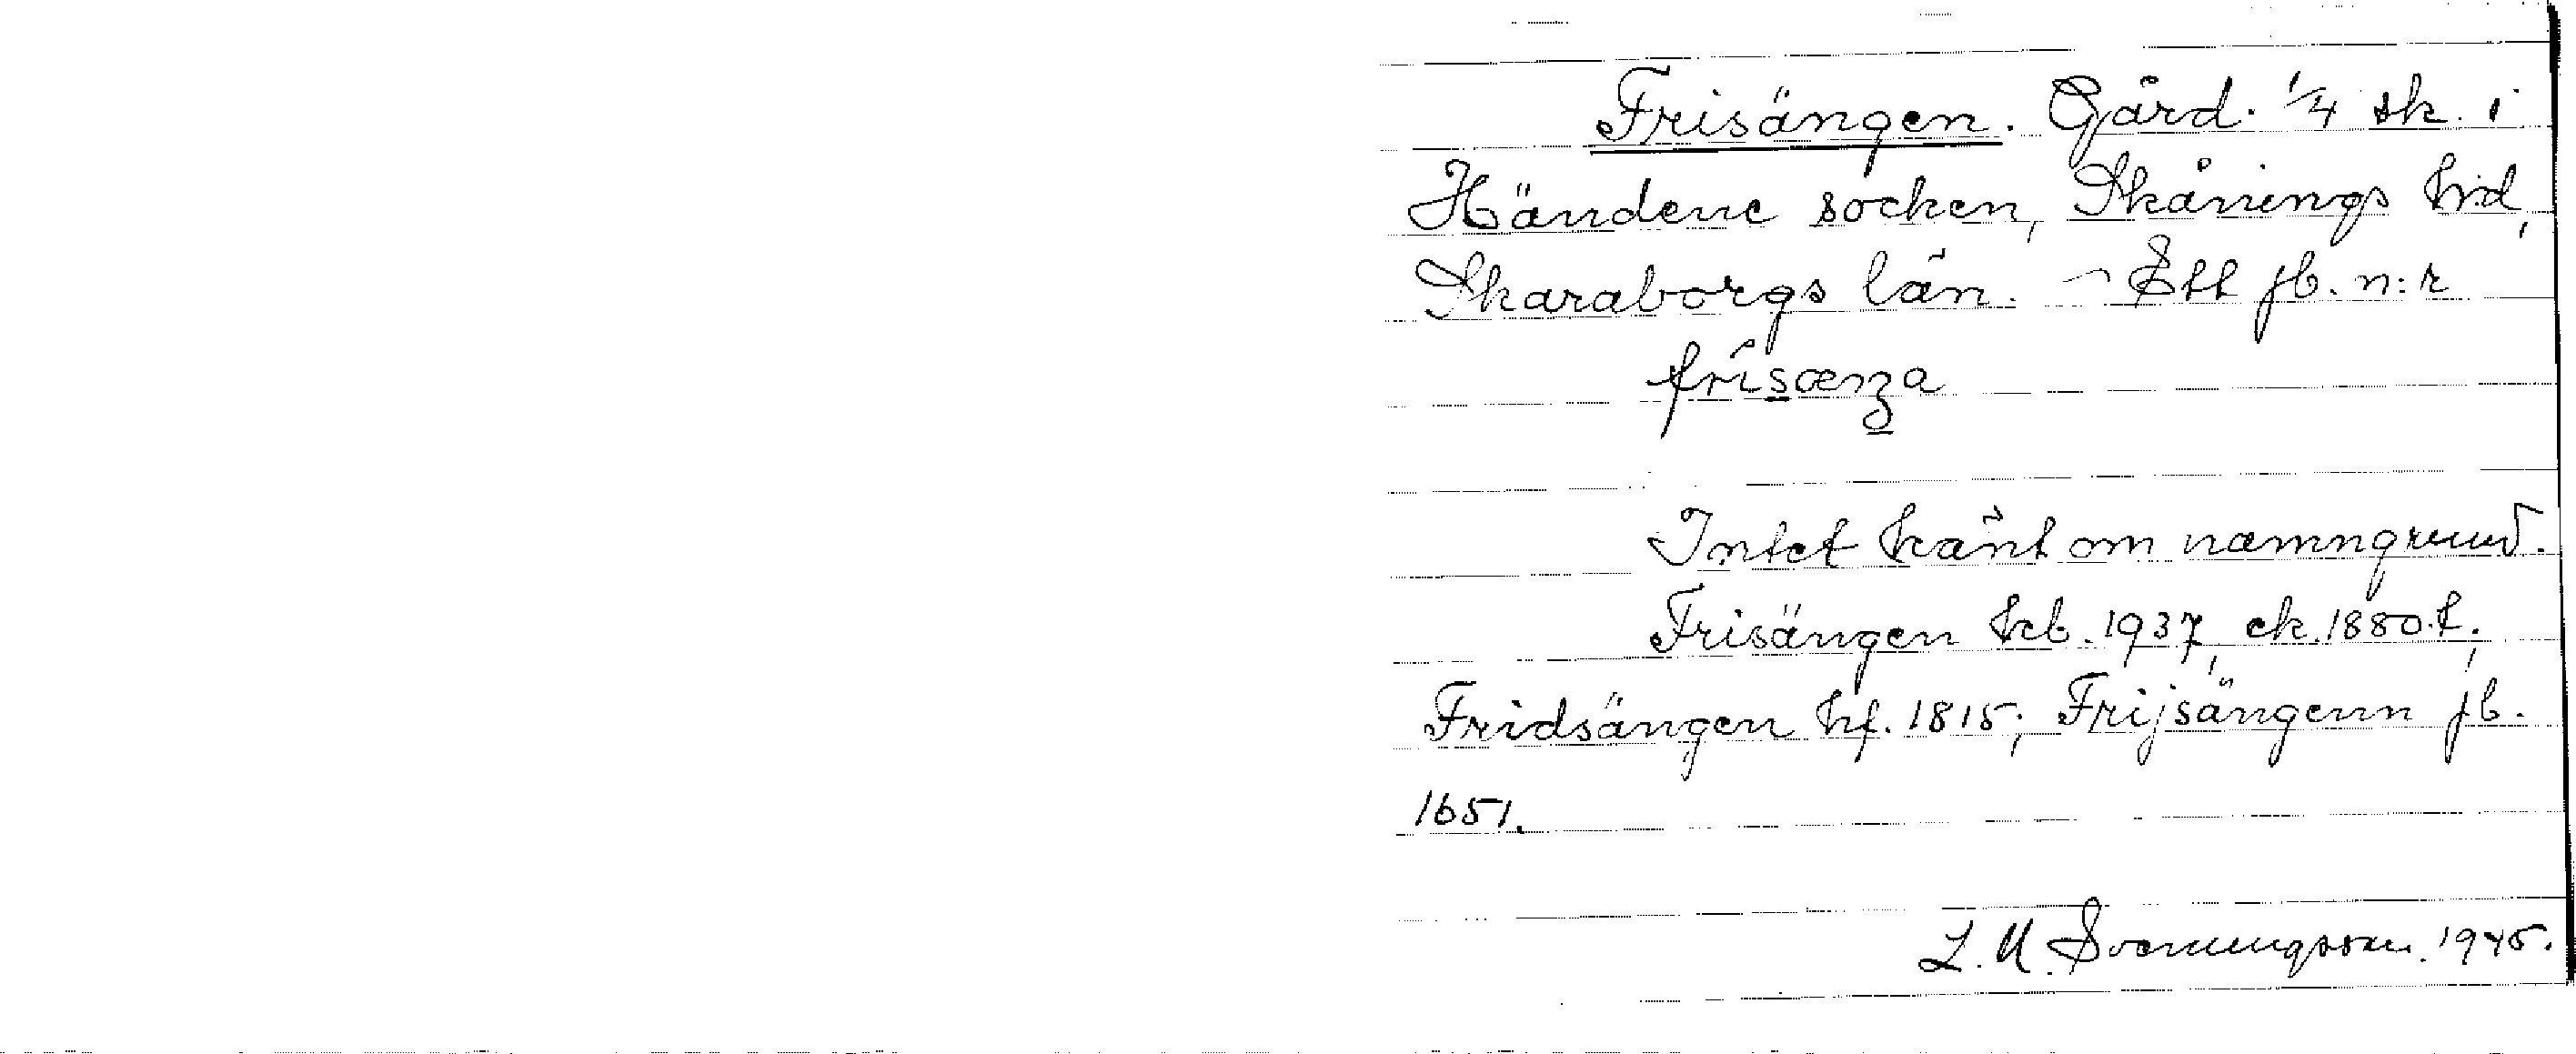 Frisängen. Gård. 1/4 sk. i
Händene socken, Skånings hd,
Skaraborgs län. – Ett jb. n:r
Intet känt om namngrund.
Frisängen kb. 1937, ek. 1880.t.;
Fridsängen hf. 1815; Frijsängenn jb.
1651.
L. M. Svenungsson. 1945.